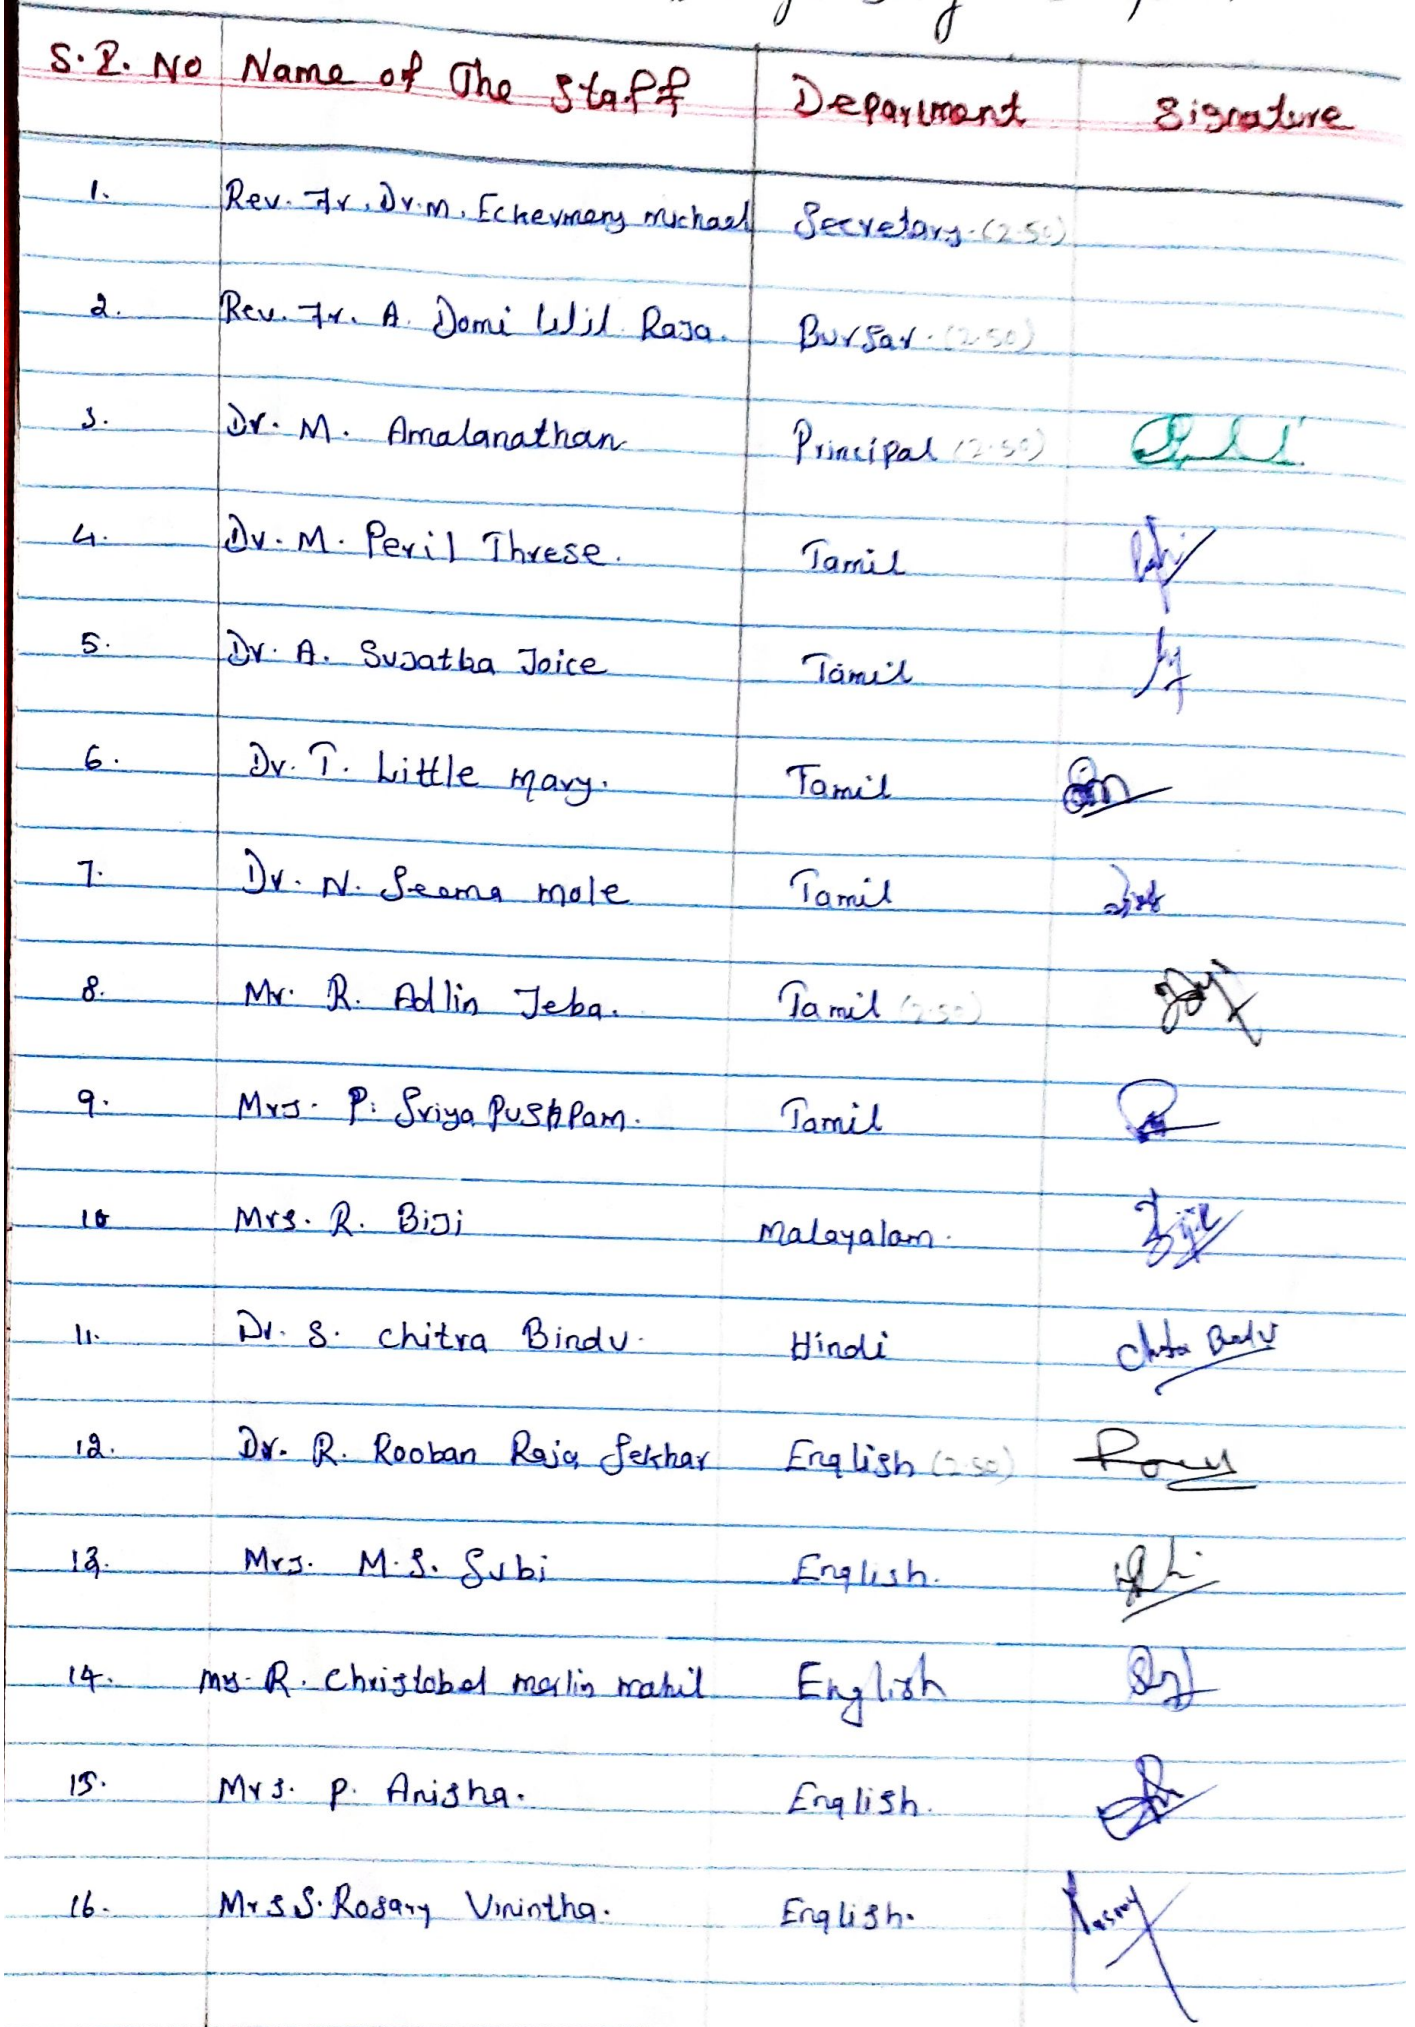 S.R. No Name of The Staff Department Signature
1. Rev. Fr. Dr. M. Eckermeny michael Secretary. (2.50)
2. Rev. Fr. A. Domi Wil Raja. Bursar. (2.50)
3. Dr. M. Amalanathan Principal (2.50)
4. Dr. M. Peril Threse. Tamil
5. Dr. A. Sujatha Joice Tamil
6. Dr. T. Little mary. Tamil
7. Dr. N. Seema mole Tamil
8. Mr. R. Adlin Jeba. Tamil (2.50)
9. Mrs. P. Sriya Pushpam. Tamil
10 Mrs. R. Biji Malayalam.
11. Dr. S. Chitra Bindu. Hindi
12. Dr. R. Rooban Raja Sekhar English (2.50)
13. Mrs. M.S. Subi English.
14. R. Christabel merlin mahil English
15. Mrs. P. Anisha. English.
16. Mrs S. Rosary Vinintha. English.